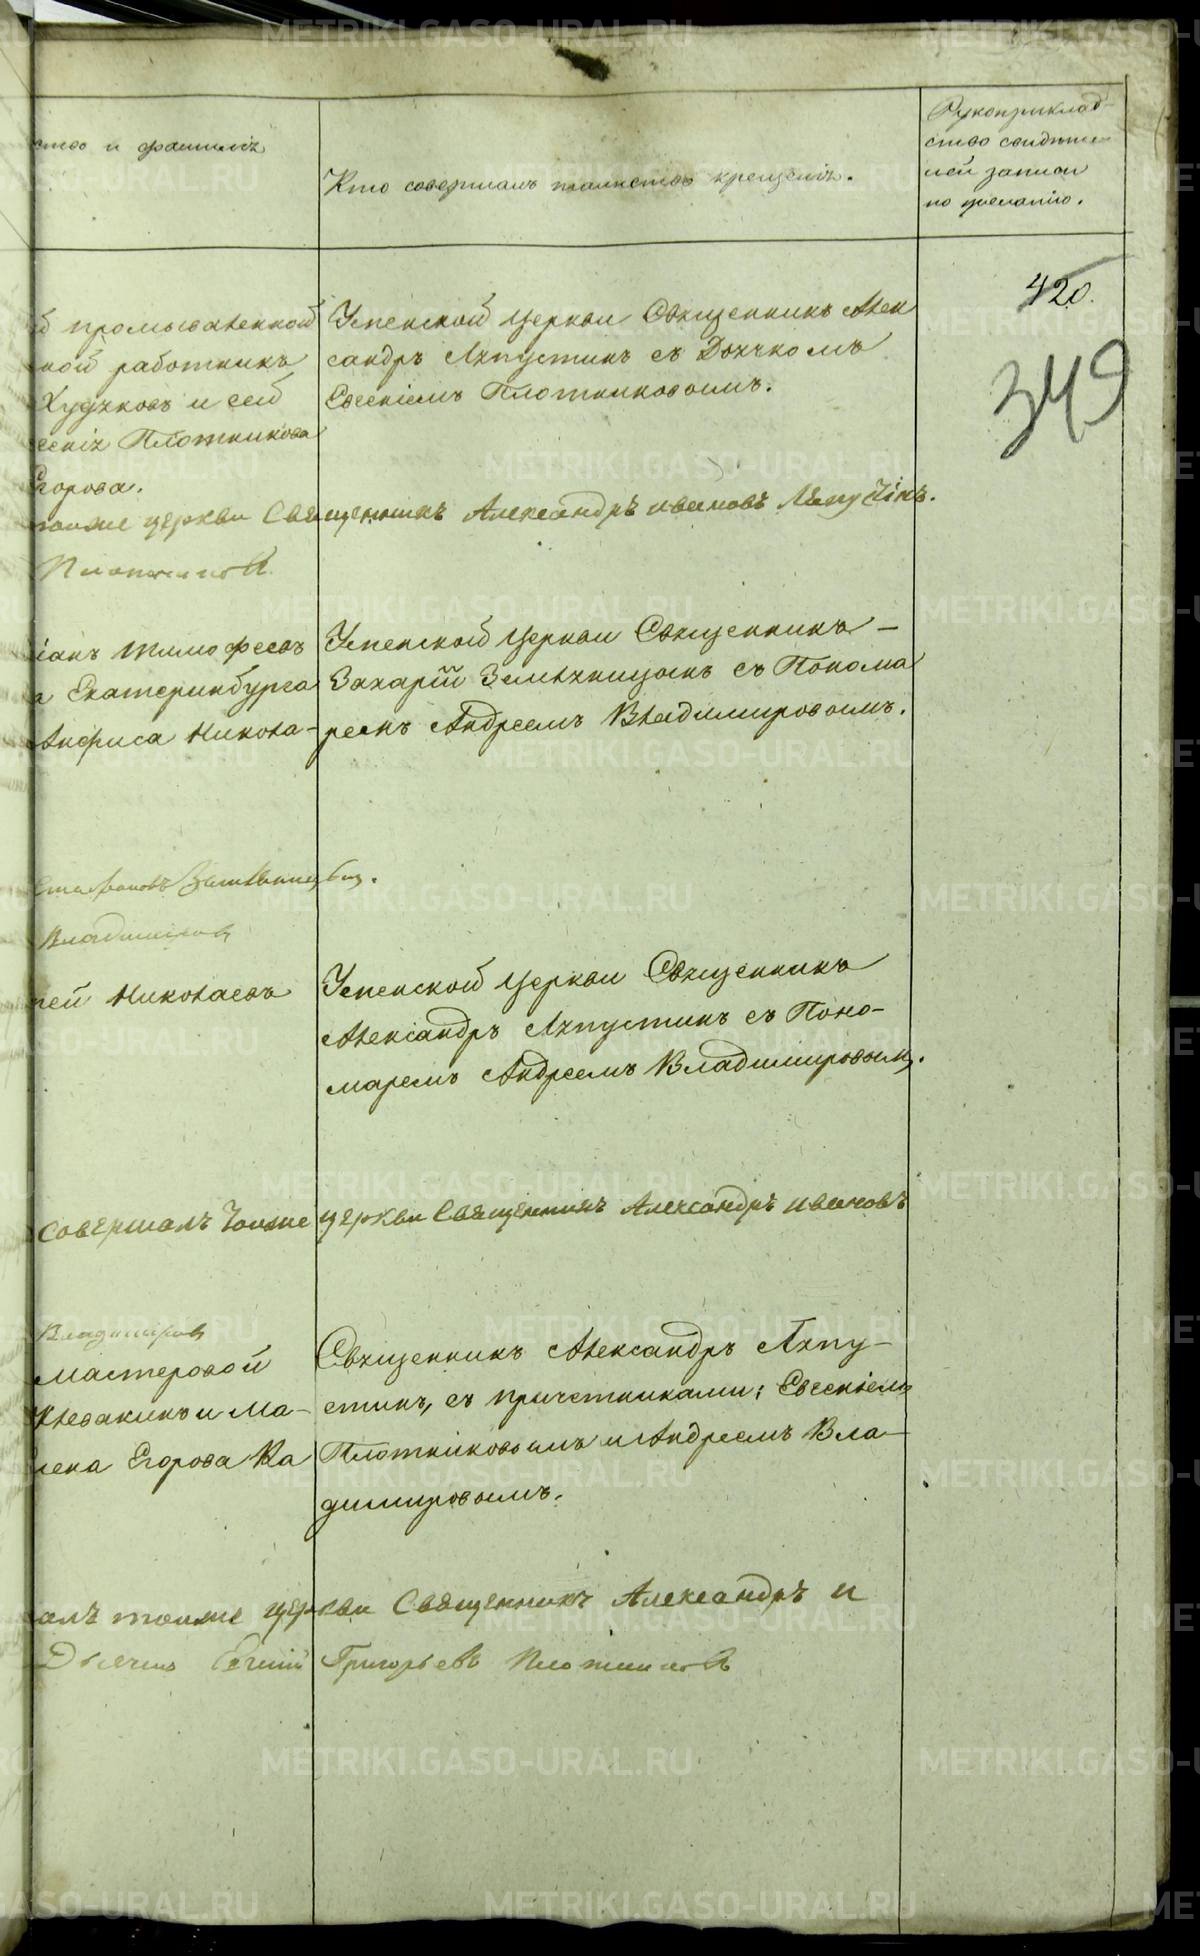 ство и фамилія
Кто совершалъ таинство крещенія.
Рукоприклад-
ство свидѣте
лей записи
по желанію.
420.
349
й промышленной
ной работникъ
Худяковъ и сей
Плотникова
Егорова.
Успенской церкви Священникъ Алек
сандръ Ляпустинъ съ Дьячкомъ
Евсеніемъ Плотниковымъ.
тоиже церкви Священникъ Александръ ивановъ Ляпустінъ.
Плотниковъ
Тимофеевъ
Екатеринбурга
Анфиса Никола-
Успенской церкви Священникъ –
Захарій Земляницынъ съ Понома
ремъ Андреемъ Владимировымъ.
Стефановъ Земляницынъ.
Владиміровъ
гей Николаевъ
Успенской церкви Священникъ
Александръ Ляпустинъ съ Поно-
маремъ Андреемъ Владиміровымъ.
совершалъ тоиже церкви Священникъ Александръ ивановъ
Владиміровъ
Мастеровой
Клевакинъ и Ма-
лена Егорова Ка
Священникъ Александръ Ляпу-
стинъ, съ причетниками: Евсеніемъ
Плотниковымъ и Андреемъ Вла-
димировымъ.
алъ тоиже церкви Священникъ Александръ и
Дьячекъ Григорьевъ Плотниковъ
METRIKI.GASO-URAL.RU